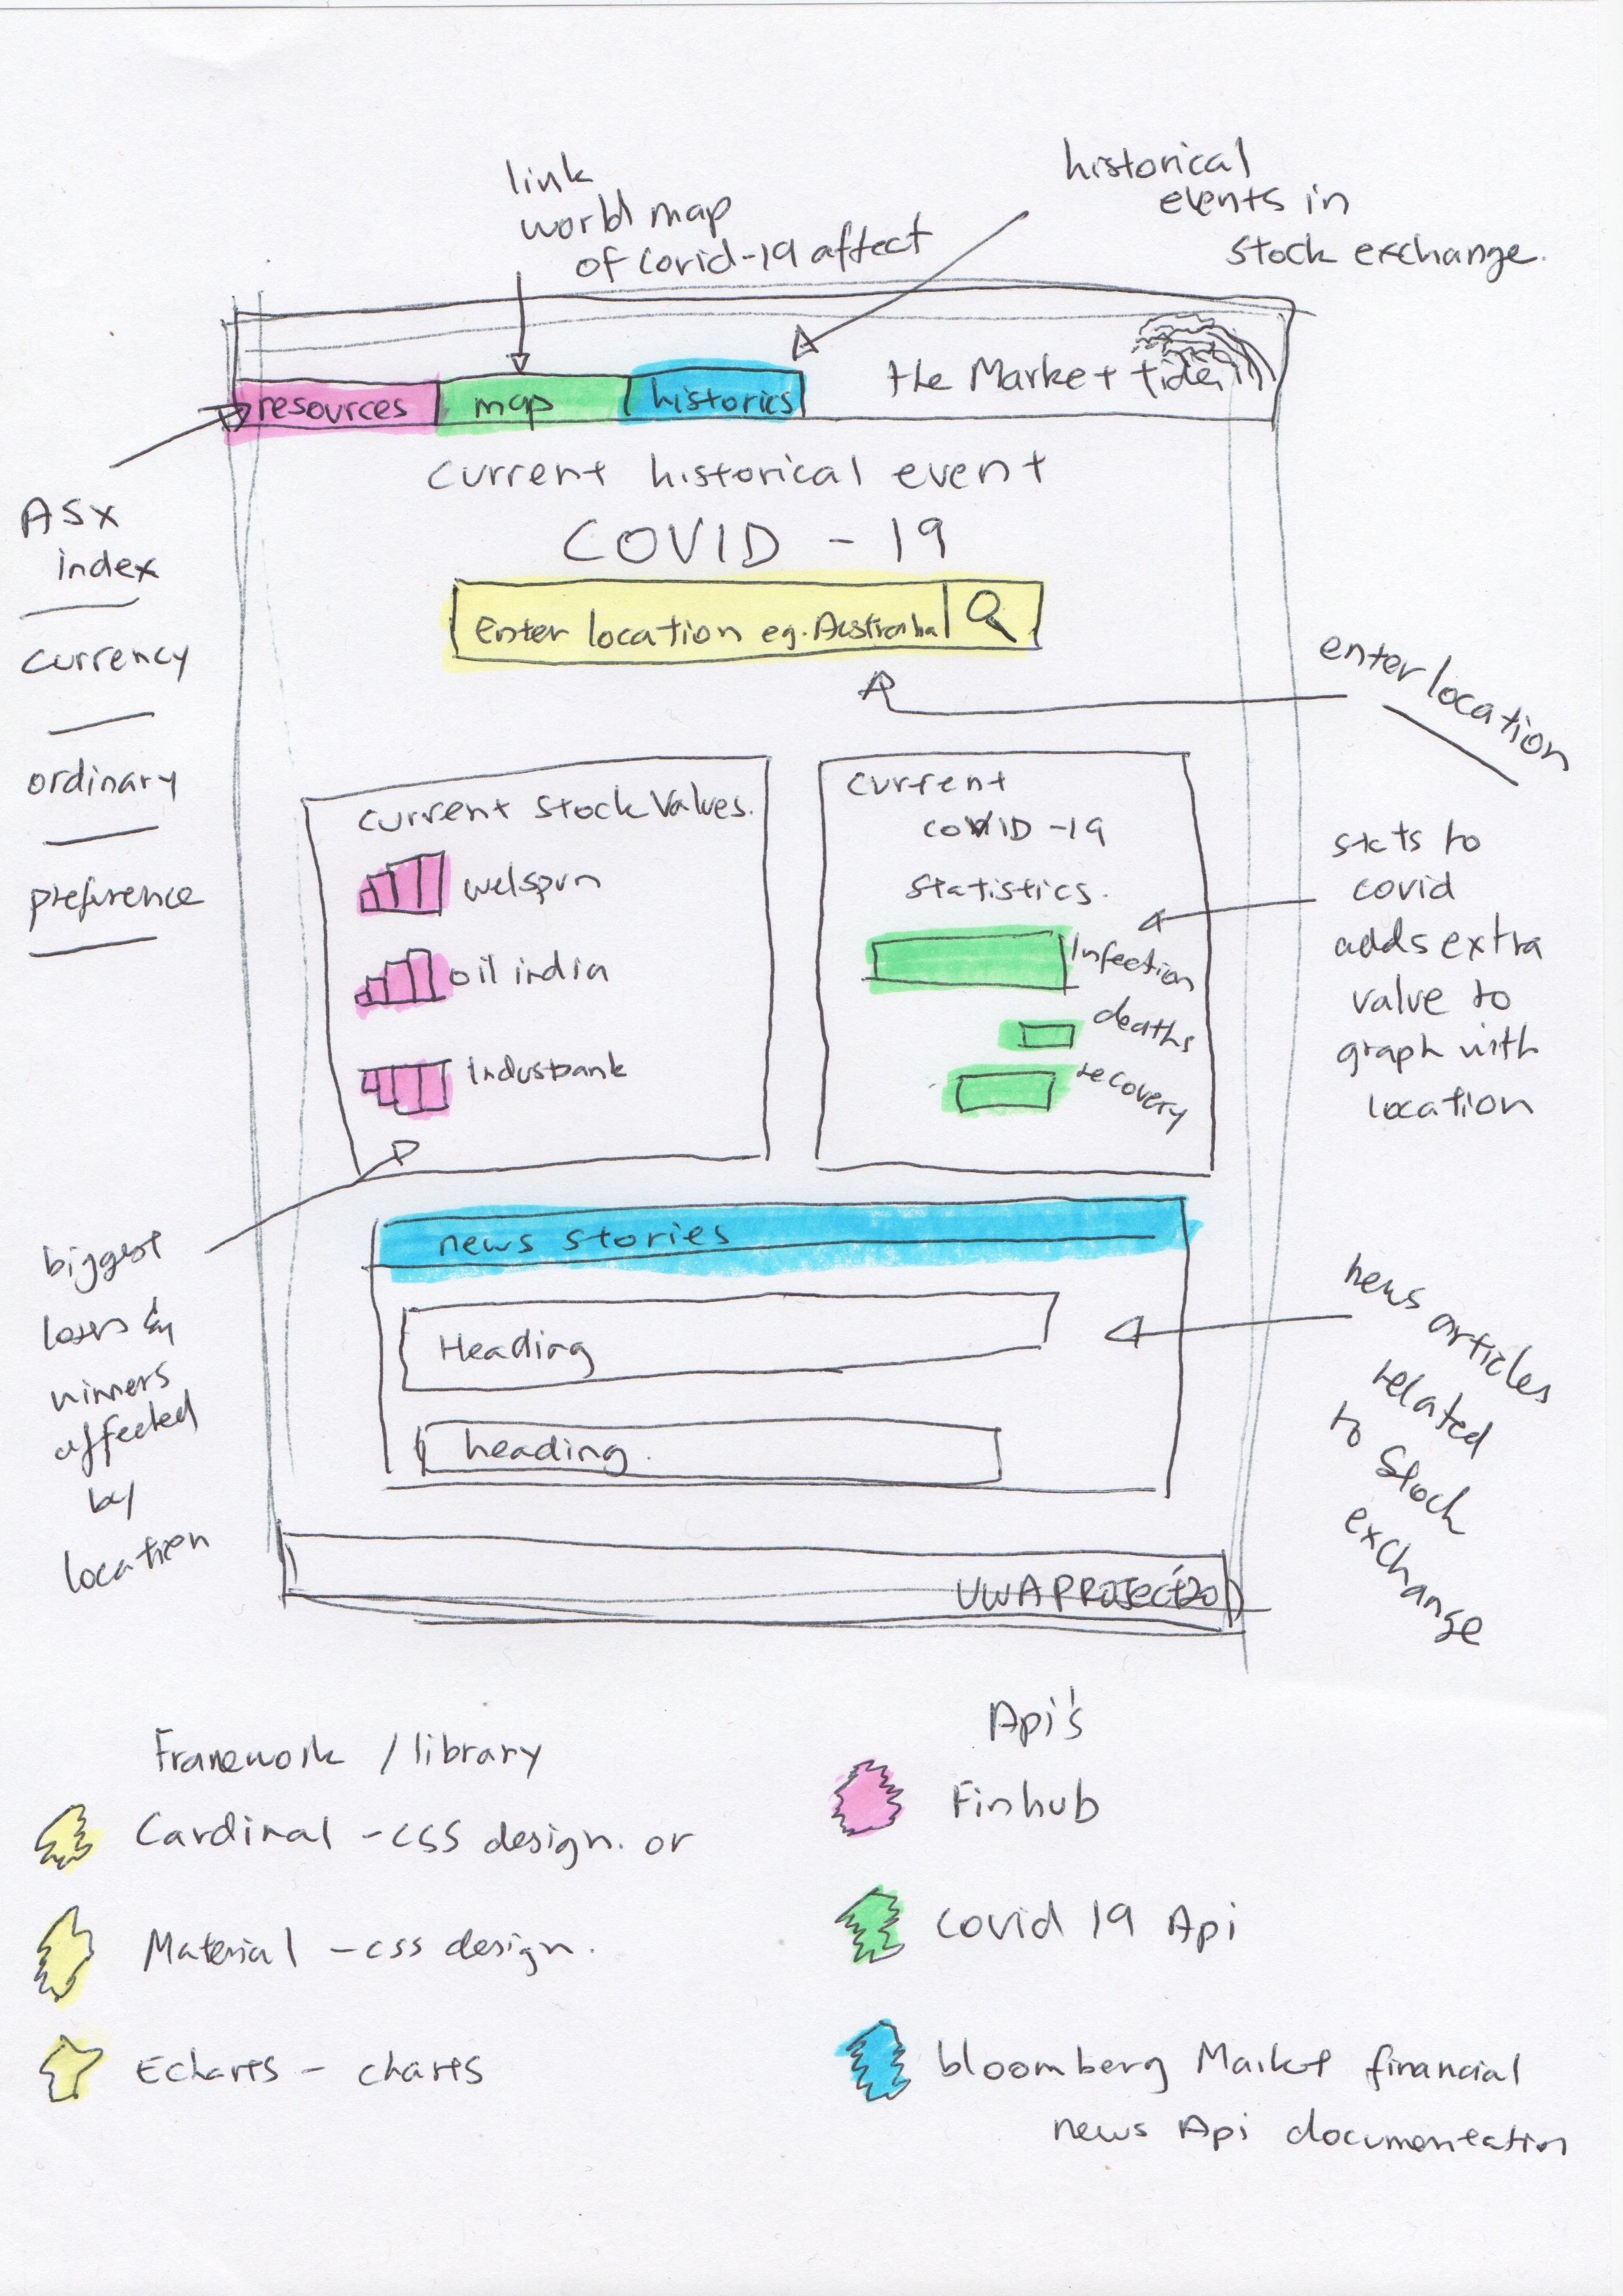 link
world map
of covid-19 affect
historical
events in
stock exchange.
resources
map
historics
the Market tide
Current historical event
COVID - 19
Enter location eg. Australia
ASX
index
currency
ordinary
preference
enter location
Current Stock Values.
welspun
oil india
Indusbank
Current
COVID -19
Statistics.
Infection
deaths
recovery
stats to
covid
adds extra
value to
graph with
location
biggest
losers &
winners
affected
by
location
news stories
Heading
heading.
news articles
related
to Stock
exchange
UWA PROJECT 20
Framework / library
Cardinal - CSS design. or
Material - css design.
Echarts - charts
Api's
Finhub
Covid 19 Api
bloomberg Market financial
news Api documentation